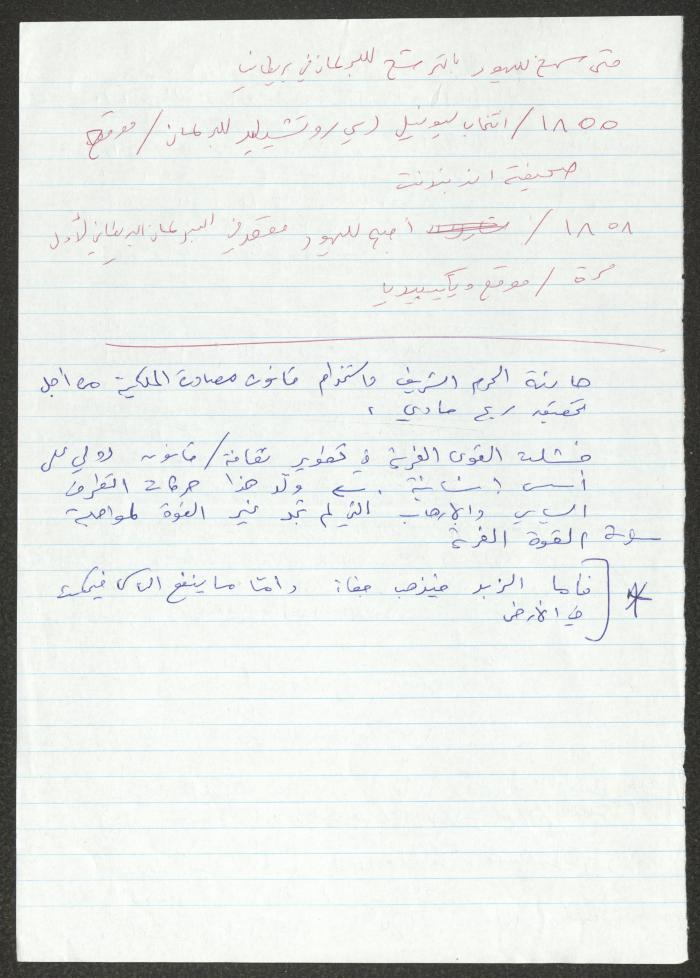 متى سمح لليهود بالترشح للبرلمان في بريطانيا
١٨٥٥ / انتخاب ليونيل دي روتشيلد للبرلمان / موقع
صحيفة اندبندنت
١٨٥٨ / أصبح لليهود مقعد في البرلمان البريطاني لأول
مرة / موقع ويكيبيديا
حارة الحرم الشريف واستخدام قانون مصادرة الملكية من اجل
تحقيق ربح مادي ،
فشلت القوى الغربية في تطوير ثقافة / قانون دولي على
أسس إنسانية . ولّد هذا حركات التطرف
السياسي والإرهاب التي لم تجد غير القوة لمواجهة
القوة الغربية
* فاما الزبد فيذهب جفاء وامّا ما ينفع الناس فيمكث
في الأرض